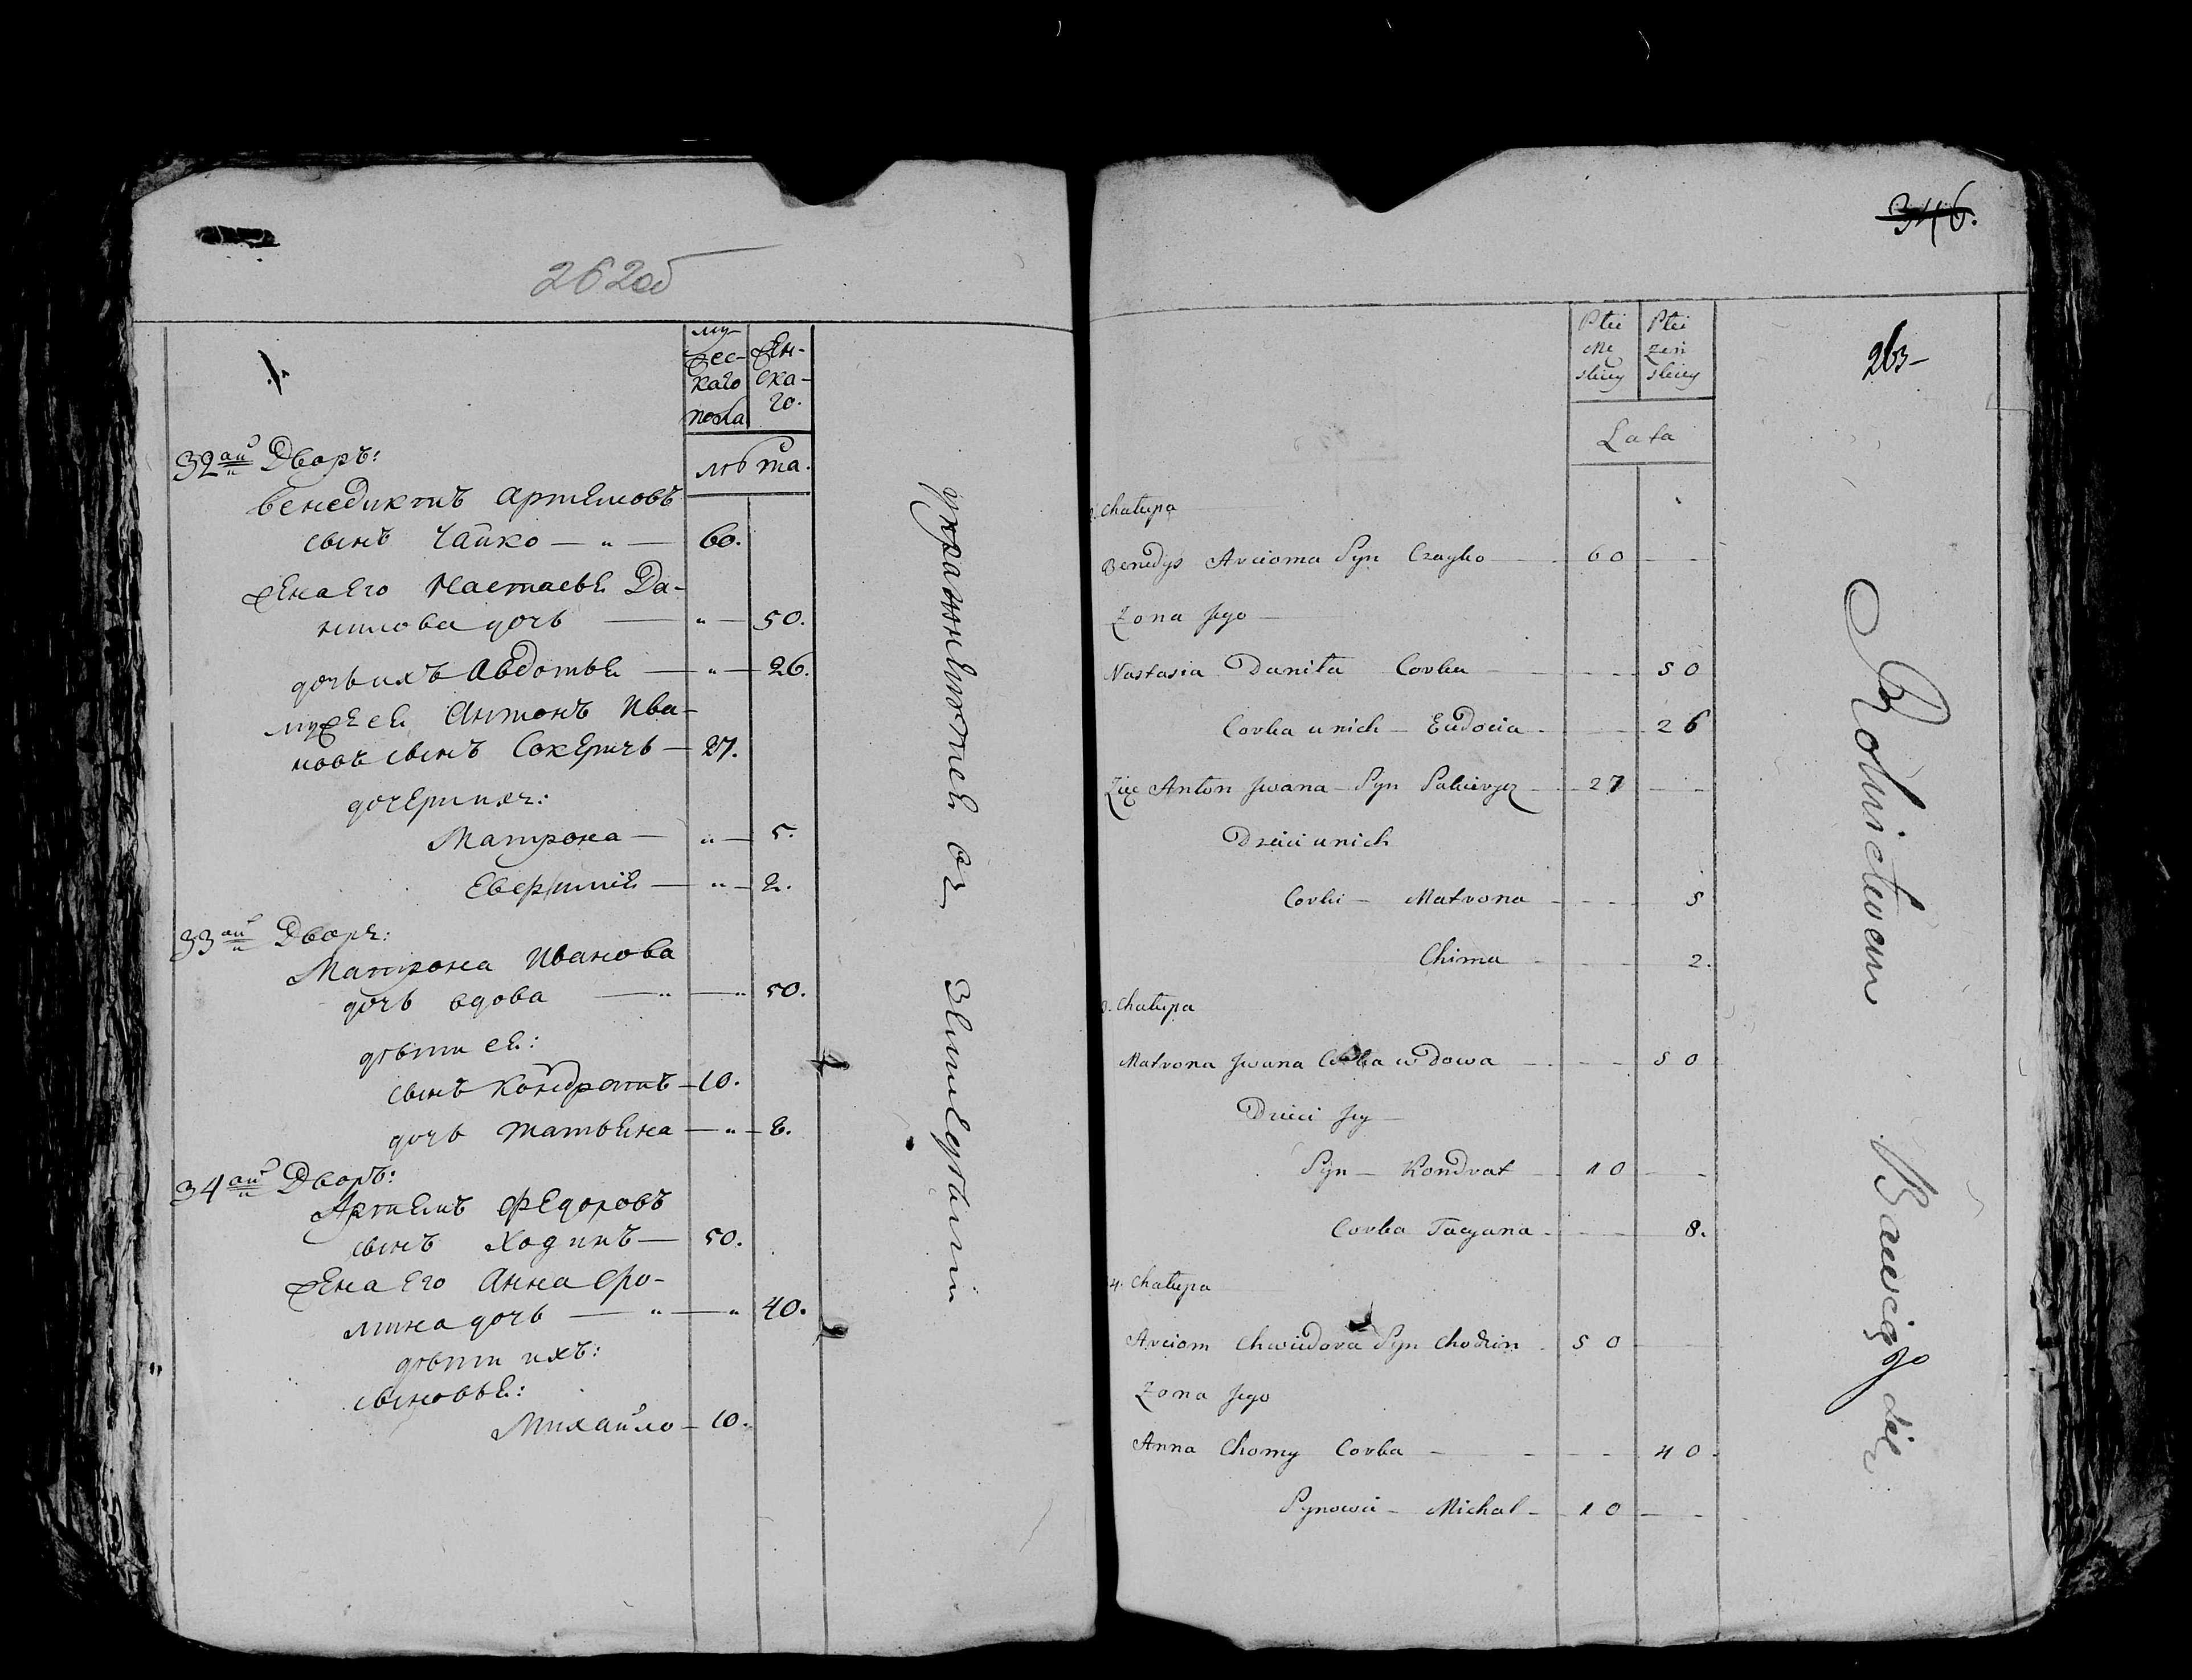 262об
мужес-
каго
пола
жен-
ска-
го.
лѣта.
32ай Дворъ:
Венедиктъ Артемовъ
сынъ Чайко — " — 60.
жена его Настасья Да-
нилова дочь — " — 50.
дочь ихъ Авдотья — " — 26.
муж ея Антонъ Ива-
новъ сынъ — 27.
дочери ихъ:
Матрона — " — 5.
— " — 2.
33ай Дворъ:
Матрона Иванова
дочь вдова — " — " 50.
дѣти ея:
сынъ Кондратъ — 10.
дочь Татьяна — " — 8.
34ай Дворъ:
Артемъ Федоровъ
сынъ Ходинъ — 50.
жена его Анна Фо-
мина дочь — " — " 40.
дѣти ихъ:
сыновья:
Михайло — 10.
упражняются въ земледѣліи
346.
263
Płci
Mę
skiey
Płci
żeń
skiey
Lata
Chałupa
Benedys Arcioma Syn Czayko — 60
Żona Jego
Nastasia Daniła Corka — 50
Corka u nich — Eudocia — 26
Zięć Anton Jwana Syn — 27
Dzieci u nich
Corki — Matrona — 5
Chima — 2.
3. Chałupa
Matrona Jwana Corka wdowa — 50
Dzieci Jey
Syn — Kondrat — 10
Corka Tacyana — 8.
4. Chałupa
Arciom Chwiedora Syn Chodzin — 50
Żona Jego
Anna Chomy Corka — 40
Synowie — Michał — 10
Rolnictwem Bawiącego się